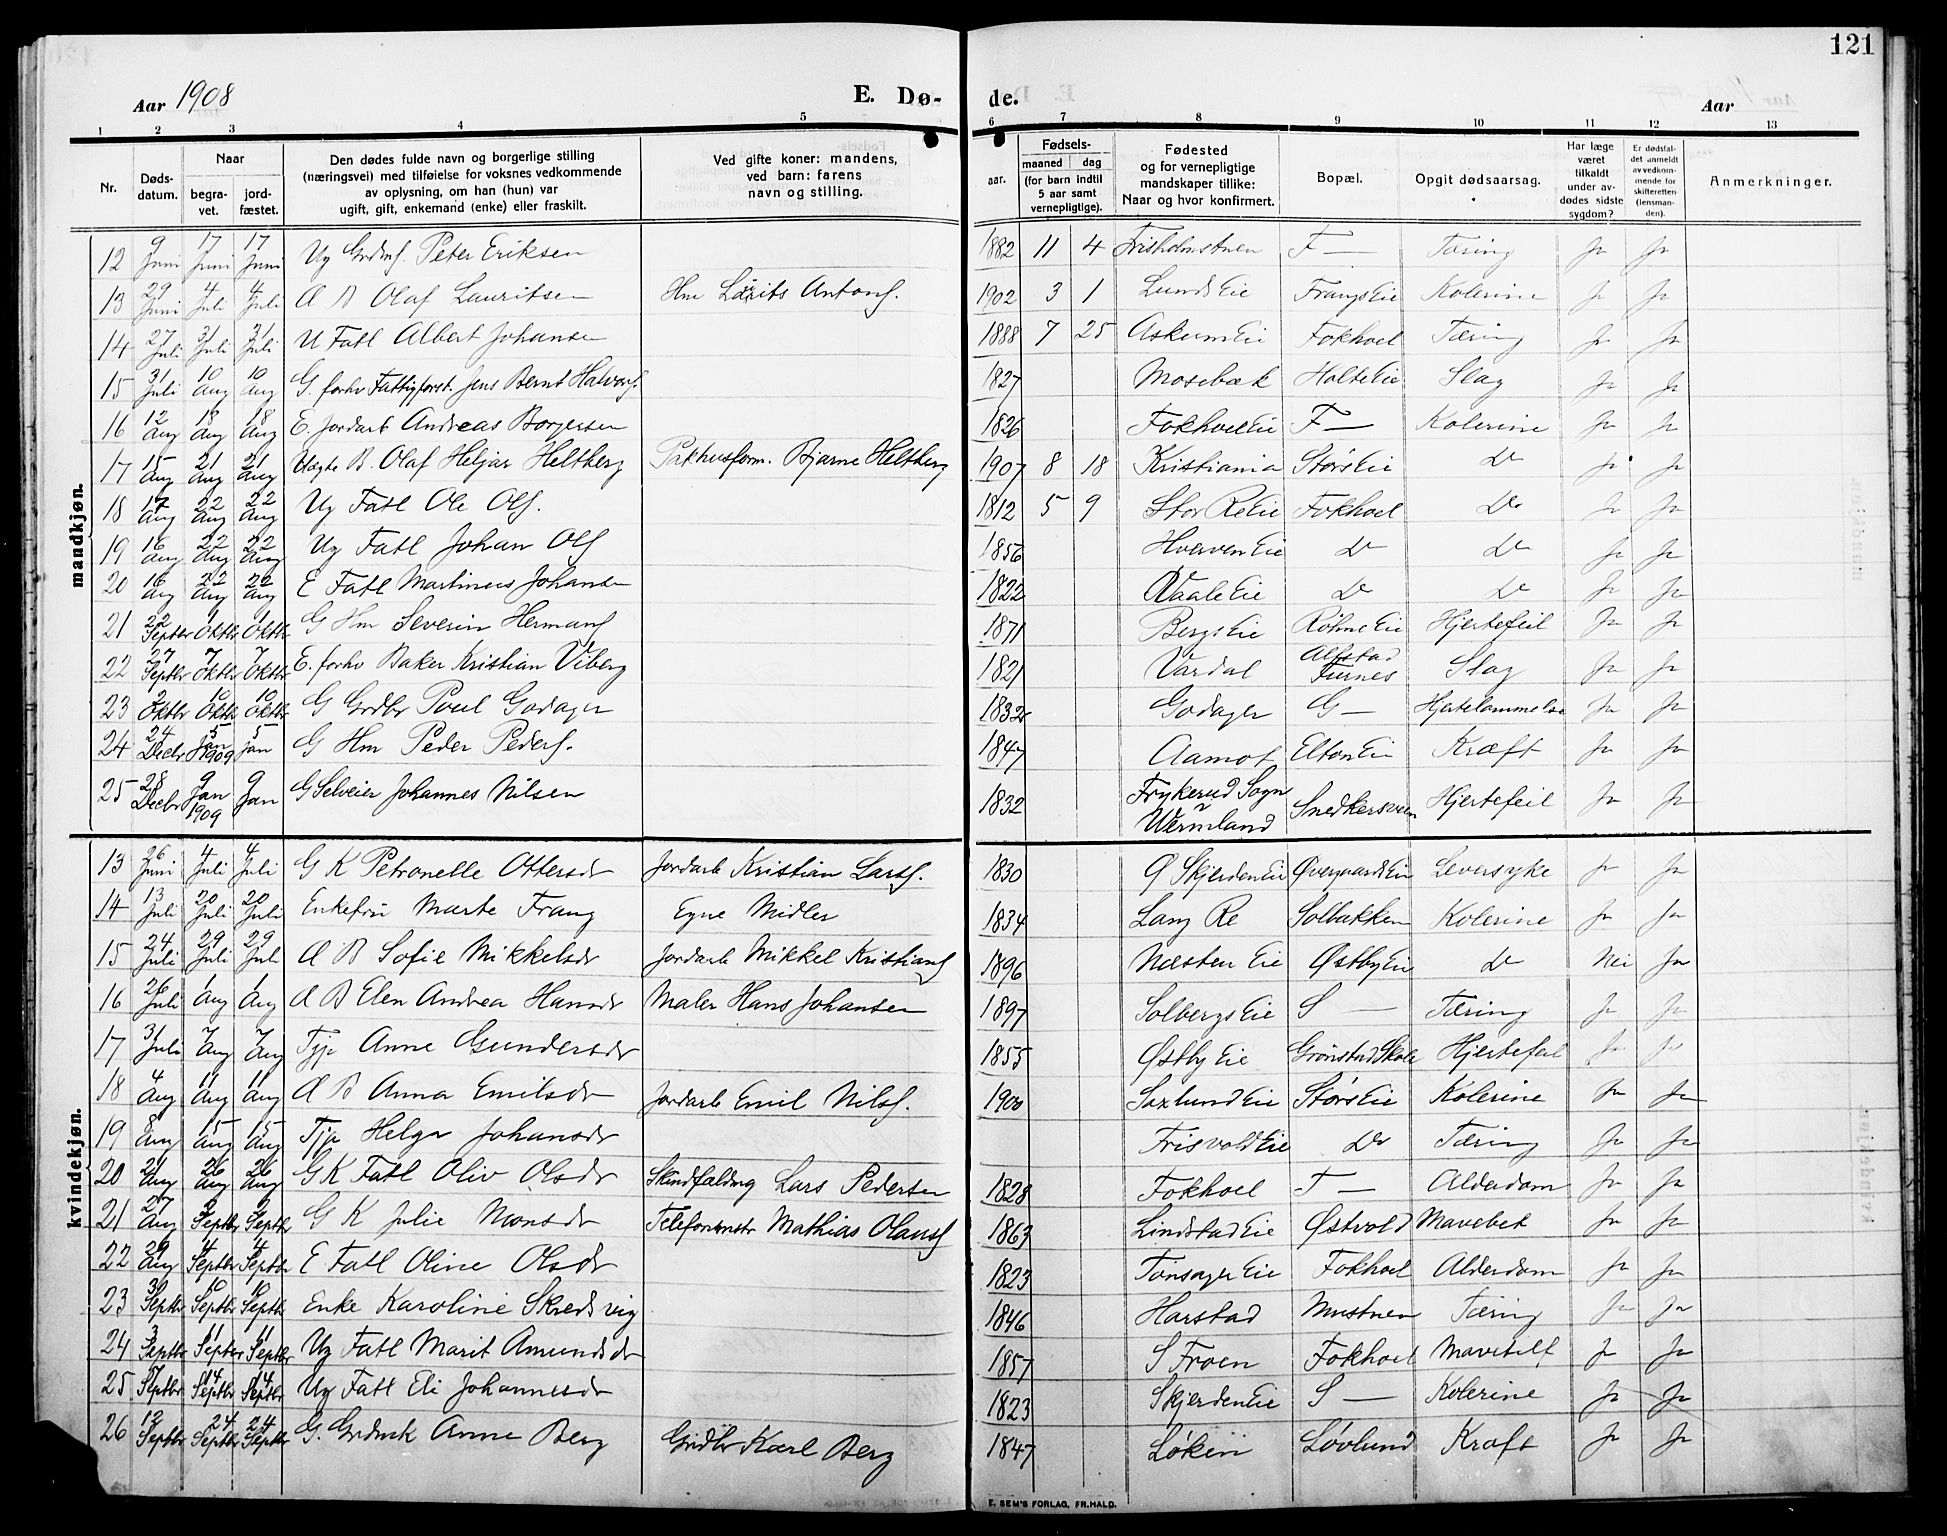 121
Aar 1908 E. Dø- de. Aar
1 2 3 4 5 6 7 8 9 10 11 12 13
Nr. Døds-datum. Naar begra-vet. jord-fæstet. Den dødes fulde navn og borgerlige stilling (næringsvei) med tilføielse for voksnes vedkommende av oplysning, om han (hun) var ugift, gift, enkemand (enke) eller fraskilt. Ved gifte koner: mandens, ved barn: farens navn og stilling. aar. Fødsels- maaned dag (for barn indtil 5 aar samt vernepligtige). Fødested og for vernepligtige mandskaper tillike: Naar og hvor konfirmert. Bopæl. Opgit dødsaarsag. Har læge været tilkaldt under av-dødes sidste sygdom? Er dødsfal-det anmeldt av vedkom-mende for skifteretten (lensman-den). Anmerkninger.
mandkjøn.
12 9 Juni 17 Juni 17 Juni Ug Grdmf. Peter Eriksen 1882 11 4 F — Tæring Ja Ja
13 29 Juni 4 Juli 4 Juli A B Olaf Lauritsen Hm Laurits Antonf. 1902 3 1 Lunds Eie Frangs Eie Kolerine Ja Ja
14 27 Juli 31 Juli 31 Juli U Fatl Albert Johansen 1888 7 25 Askum Eie Fokhoel Tæring Ja Ja
15 31 Juli 10 Aug 10 Aug G. forhv Fattigforst. Jens Bernt Halvorf. 1827 Mosebæk Holte Eie Slag Ja Ja
16 12 Aug 18 Aug 18 Aug E. Jordarb Andreas Borgersen 1826 Fokhoel Eie F — Kolerine Ja Ja
17 15 Aug 21 Aug 21 Aug Uægte B. Olaf Heljar Heltberg Pakhusform. Bjarne Heltberg 1907 8 18 Kristiania Størs Eie Do Ja Ja
18 17 Aug 22 Aug 22 Aug Ug Fatl Ole Olf. 1812 5 9 Stor Re Eie Fokhoel Do Ja Ja
19 16 Aug 22 Aug 22 Aug Ug Fatl Johan Olf 1856 Hverven Eie Do Do Ja Ja
20 16 Aug 22 Aug 22 Aug E Fatl Martinus Johansen 1822 Vaale Eie Do Do Ja Ja
21 22 Septbr 1 Oktbr 1 Oktbr G Hm Severin Hermanf 1871 Bergs Eie Røhne Eie Hjertefeil Ja Ja
22 27 Septbr 7 Oktbr 7 Oktbr E. forhv Baker Kristian Viberg 1821 Vardal Alfstad Furnes Slag Ja Ja
23 2 Oktbr 10 Oktbr 10 Oktbr G Grdbr Poul Godager 1832 Godager G — Hjertelammelse Ja Ja
24 24 Decbr 5 Jan 1909 5 Jan G Hm Peder Pederf. 1847 Aamot Elton Eie Kræft Ja Ja
25 28 Decbr 9 Jan 1909 9 Jan G Selveier Johannes Nilsen 1832 Frykerud Sogn Wermland Snedkersveen Hjertefeil Ja Ja
kvindekjøn.
13 26 Juni 4 Juli 4 Juli G K Petronelle Ottersdr Jordarb Kristian Larsf. 1830 Ø Skjerden Eie Øvergaards Eie Leversyke Ja Ja
14 13 Juli 20 Juli 20 Juli Enkefru Marte Frang Egne Midler 1834 Lang Re Solbakken Kolerine Ja Ja
15 24 Juli 29 Juli 29 Juli A B Sofie Mikkelsdr Jordarb Mikkel Kristianf 1896 Næsten Eie Østby Eie Do Nei Ja
16 26 Juli 1 Aug 1 Aug A B Elen Andrea Hansdr Maler Hans Johansen 1897 Solbergs Eie S — Tæring Ja Ja
17 31 Juli 7 Aug 7 Aug Tjp Anne Gundersdr 1855 Østby Eie Grønstad Skole Hjertefeil Ja Ja
18 4 Aug 11 Aug 11 Aug A B Anna Emilsdr Jordarb Emil Nilsf. 1900 Saxlund Eie Størs Eie Kolerine Ja Ja
19 8 Aug 15 Aug 15 Aug Tjp Helga Johansdr Frisvold Eie Do Tæring Ja Ja
20 21 Aug 26 Aug 26 Aug G K Fatl Oliv Olsdr Skindfældmg Lars Pedersen 1828 Fokhoel F — Alderdom Ja Ja
21 27 Aug 2 Septbr 2 Septbr G K Julie Monsdr Telefonmstr Mathias Olausf 1863 Lindstad Eie Østvold Mavebet Ja Ja
22 29 Aug 4 Septbr 4 Septbr E Fatl Oline Olsdr 1823 Tønsager Eie Fokhoel Alderdom Ja Ja
23 3 Septbr 10 Septbr 10 Septbr Enke Karoline Skredsvig 1846 Harstad Mustuen Tæring Ja Ja
24 3 Septbr 11 Septbr 11 Septbr Ug Fatl Marit Amundsdr 1857 S Froen Fokhoel Ja Ja
25 7 Septbr 14 Septbr 14 Septbr Ug Fatl Eli Johannesdr 1823 Skjerden Eie S — Kolerine Ja Ja
26 12 Septbr 24 Septbr 24 Septbr G. Grdmk Anne Berg Grdbr Karl Berg 1847 Løken Løvlund Kræft Ja Ja
E. SEM'S FORLAG, FR.HALD.